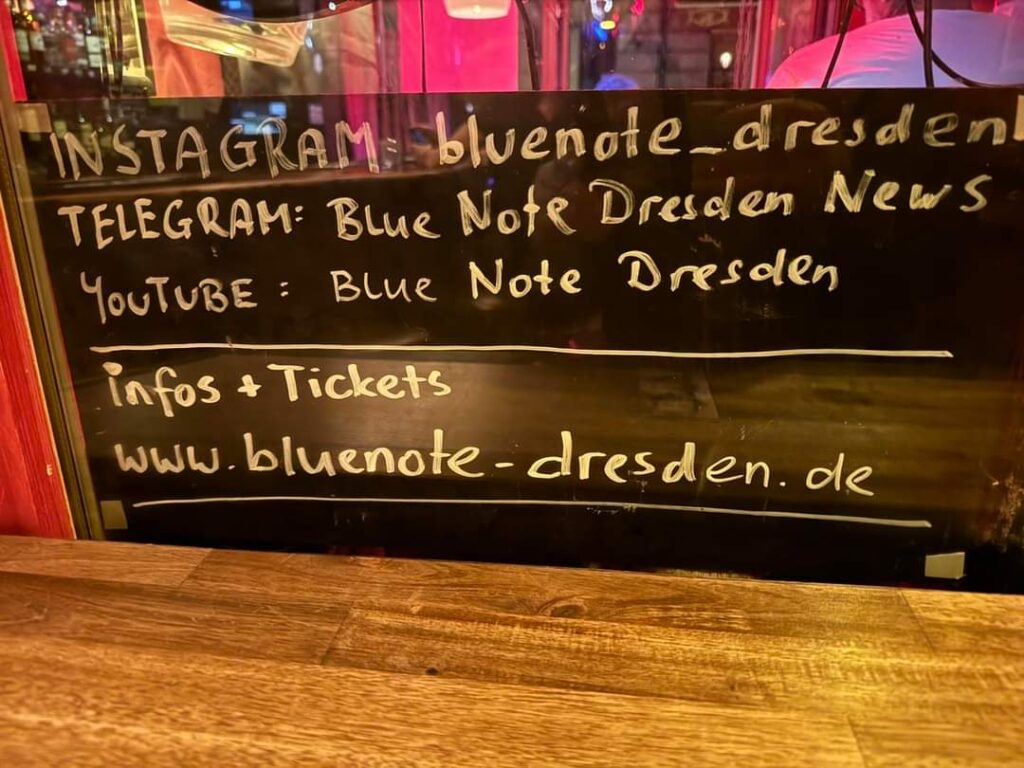 INSTAGRAM: bluenote_dresden
TELEGRAM: BLUE NOTE DRESDEN NEWS
YOUTUBE: BLUE NOTE DRESDEN
infos + Tickets
www.bluenote-dresden.de